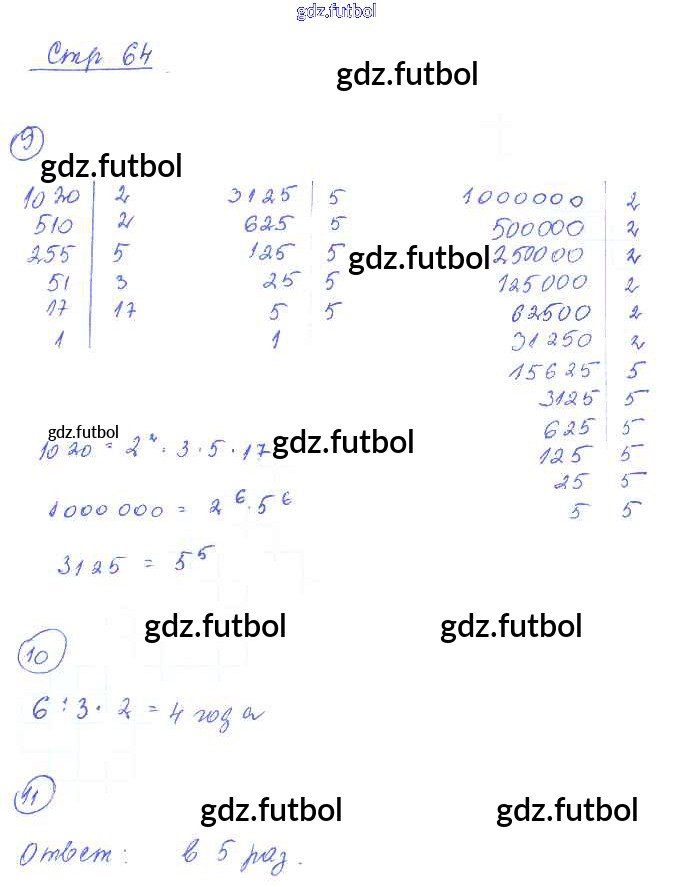 gdz.futbol
Стр 64
gdz.futbol
9
gdz.futbol
1020 | 2
510 | 2
255 | 5
51 | 3
17 | 17
1
3125 | 5
625 | 5
125 | 5
25 | 5
5 | 5
1
gdz.futbol
1000000 | 2
500000 | 2
250000 | 2
125000 | 2
62500 | 2
31250 | 2
15625 | 5
3125 | 5
625 | 5
125 | 5
25 | 5
5 | 5
gdz.futbol
gdz.futbol
1020 = 2² · 3 · 5 · 17
1000000 = 2⁶ · 5⁶
3125 = 5⁵
gdz.futbol gdz.futbol
10
6 : 3 · 2 = 4 года
11
gdz.futbol gdz.futbol
Ответ: в 5 раз.